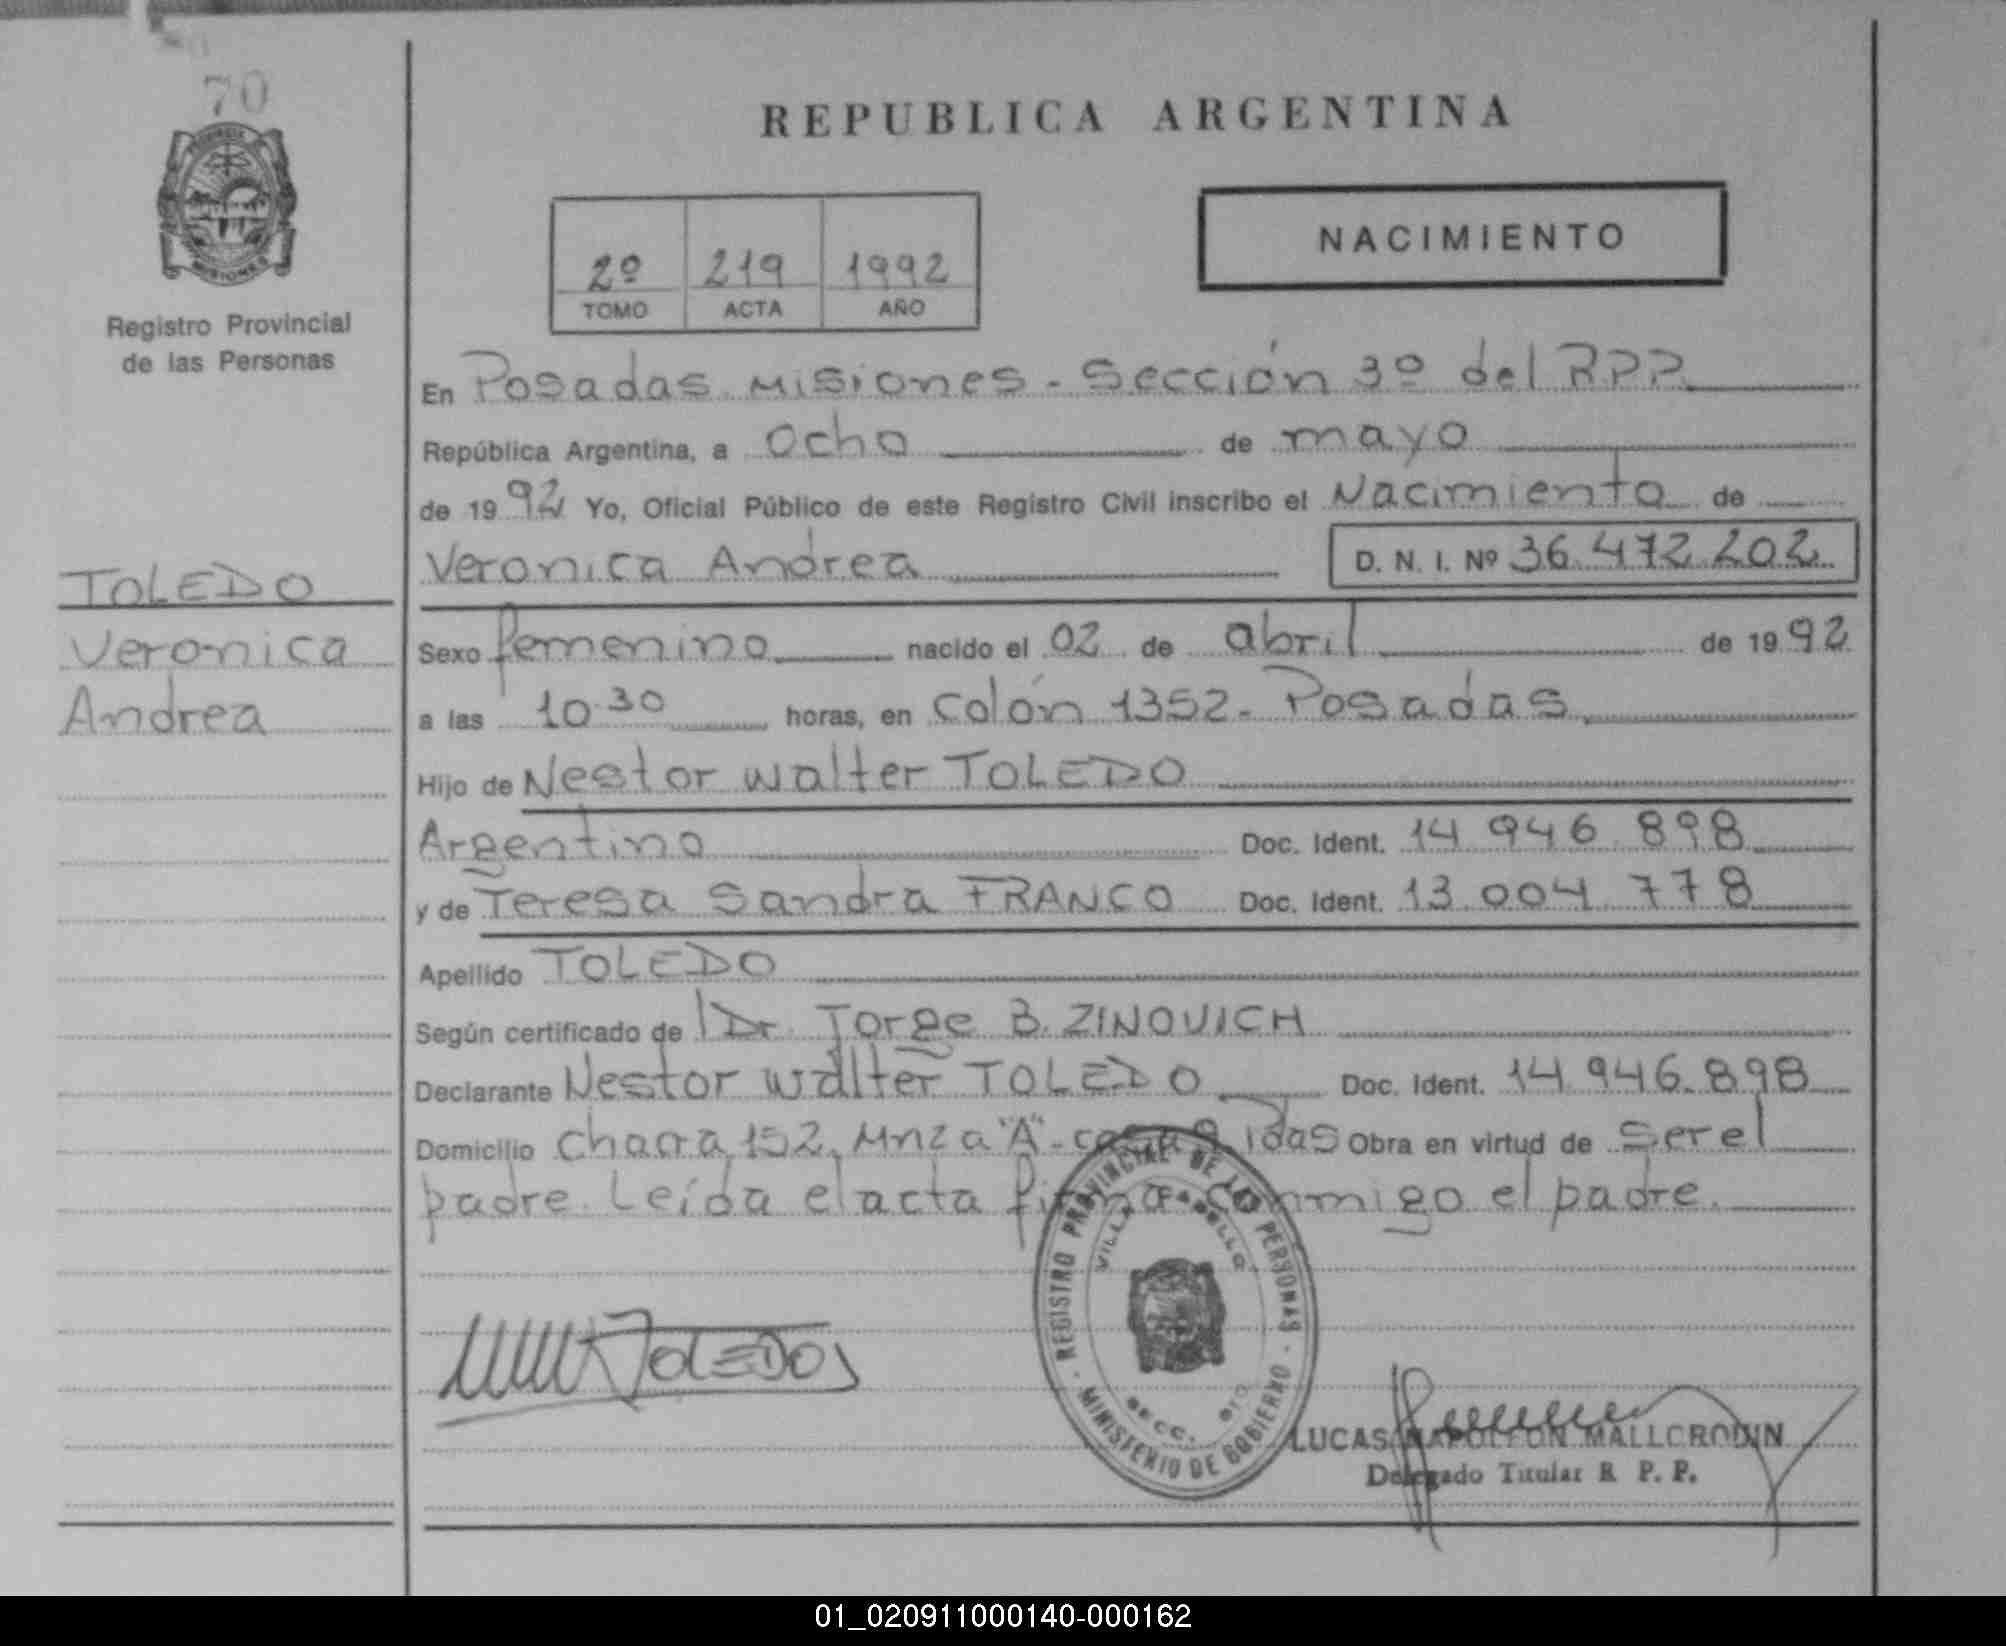 70
MISIONES
Registro Provincial
de las Personas
TOLEDO
Veronica
Andrea
REPUBLICA ARGENTINA
2º 219 1992
TOMO ACTA AÑO
NACIMIENTO
En Posadas. Misiones - Sección 3º del RPP.
República Argentina, a Ocho de mayo
de 19 92 Yo, Oficial Público de este Registro Civil inscribo el Nacimiento de
Veronica Andrea D. N. I. Nº 36.472.202
Sexo femenino nacido el 02 de abril de 19 92
a las 10.30 horas, en Colón 1352 - Posadas
Hijo de Nestor Walter TOLEDO
Argentino Doc. Ident. 14 946 898
y de Teresa Sandra FRANCO Doc. Ident. 13.004.778
Apellido TOLEDO
Según certificado de Dr. Jorge B. ZINOVICH
Declarante Nestor Walter TOLEDO Doc. Ident. 14.946.898
Domicilio Chacra 152, Mnza "A" - casa Pdas Obra en virtud de ser el
padre. Leída el acta firma conmigo el padre.
REGISTRO PROVINCIAL DE LAS PERSONAS
VILLA
SECC.
MINISTERIO DE GOBIERNO
TOLEDO
LUCAS NAPOLEON MALLORQUIN
Delegado Titular R. P. P.
01_020911000140-000162